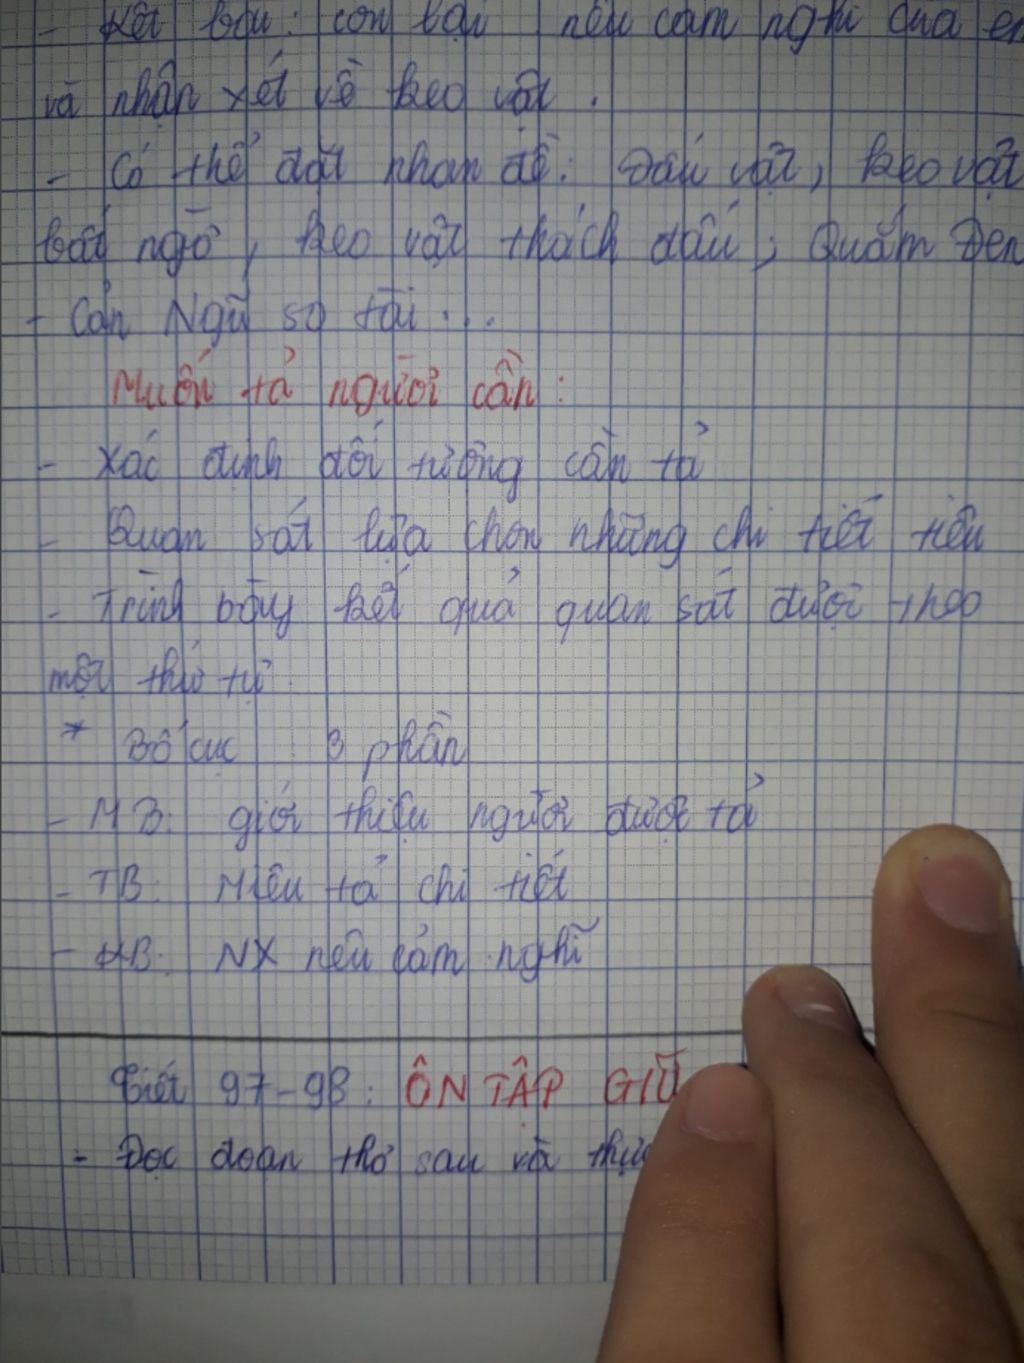 - Kết bài: còn lại nêu cảm nghĩ của em
và nhận xét về keo vật.
- Có thể đặt nhan đề: Đấu vật, keo vật
bất ngờ, keo vật thách đấu, Quắm Đen
- Cản Ngũ so tài...
Muốn tả người cần:
- Xác định đối tượng cần tả
- Quan sát lựa chọn những chi tiết tiêu
- Trình bày kết quả quan sát được theo
một thứ tự
* Bố cục : 3 phần
- MB: giới thiệu người được tả
- TB: Miêu tả chi tiết
- KB: NX nêu cảm nghĩ
Tiết 97-98: ÔN TẬP GIỮ
- Đọc đoạn thơ sau và thực